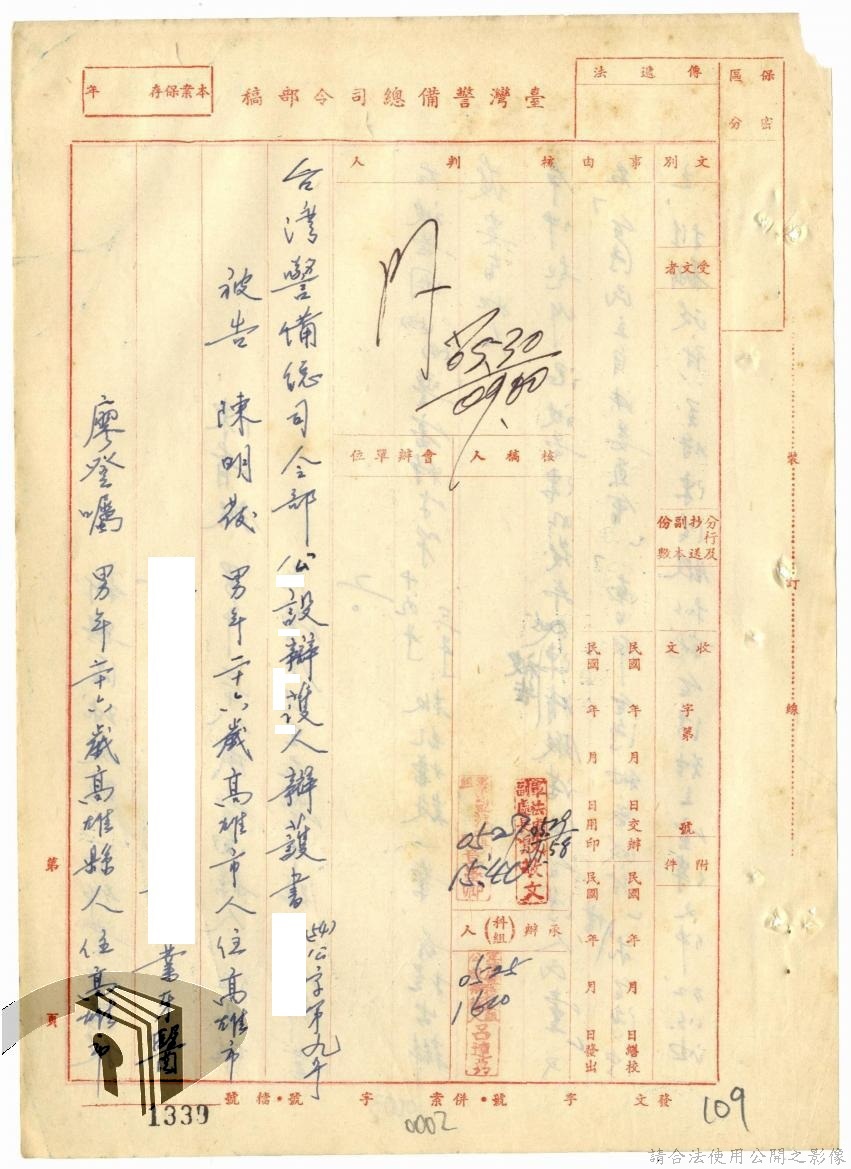 保密
區分
傳遞法
臺灣警備總司令部稿
本案保存 年
文別
事由
核判人
受文者
分行及抄送副本份數
收文 字第 號
附件
民國 年 月 日交辦
民國 年 月 日繕校
民國 年 月 日用印
民國 年 月 日發出
核稿人
會辦單位
承辦人
(科組)
0530
0900
0529
0527
1540
0525
1600
台灣警備總司令部公設辯護人辯護書
(54)公字第九号
被告 陳明發 男年二十六歲高雄市人住高雄市
業牙醫
廖登囑 男年二十六歲高雄縣人住高雄市
裝訂線
第 頁
發文 字 號・併案 字 號・檔號
1339
0002
109
請合法使用公開之影像